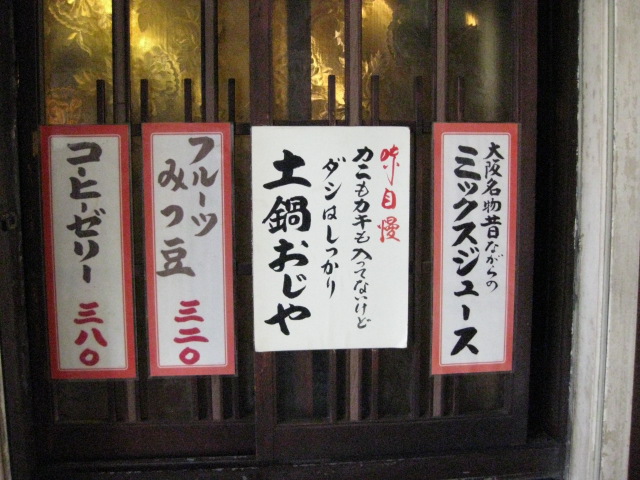 大阪名物昔ながらの
ミックスジュース
味自慢
カニもカキも入ってないけど
ダシはしっかり
土鍋おじや
フルーツ
みつ豆
三二〇
コーヒーゼリー
三八〇